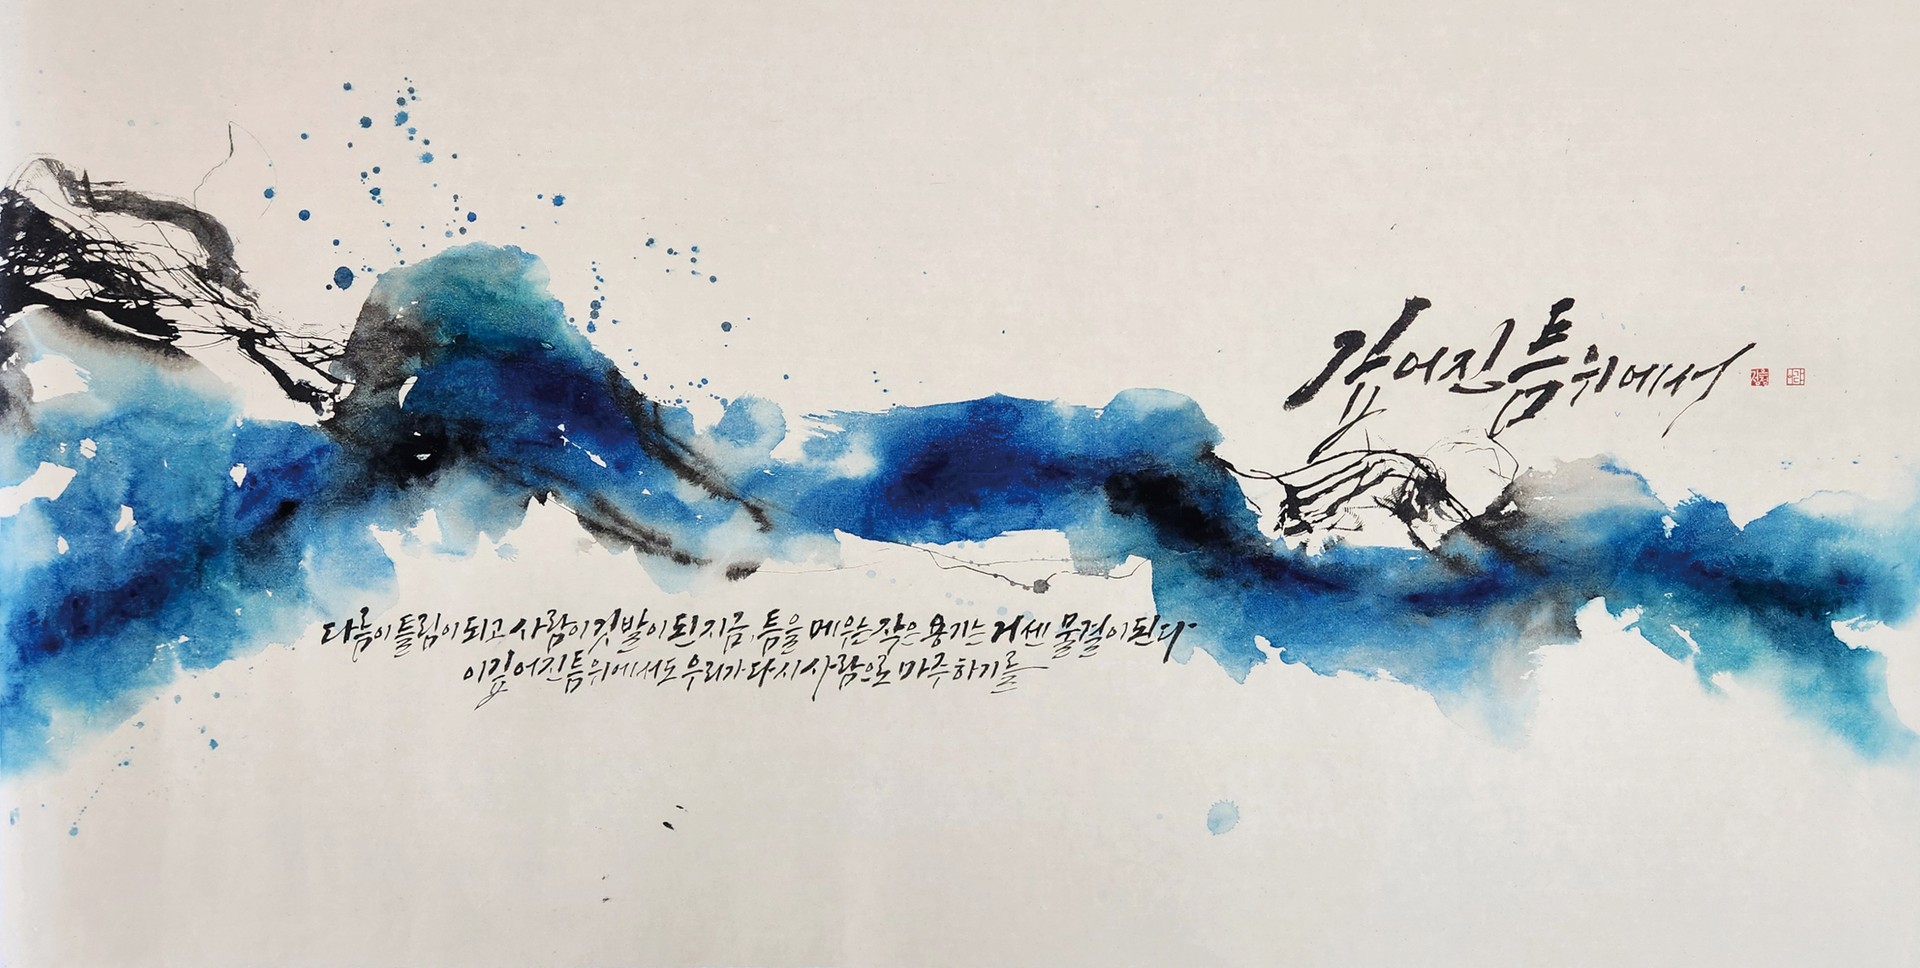 깊어진 틈 위에서
다름이 틀림이 되고 사람이 깃발이 된 지금, 틈을 메우는 작은 용기는 거센 물결이 된다
이 깊어진 틈 위에서도 우리가 다시 사람으로 마주하기를